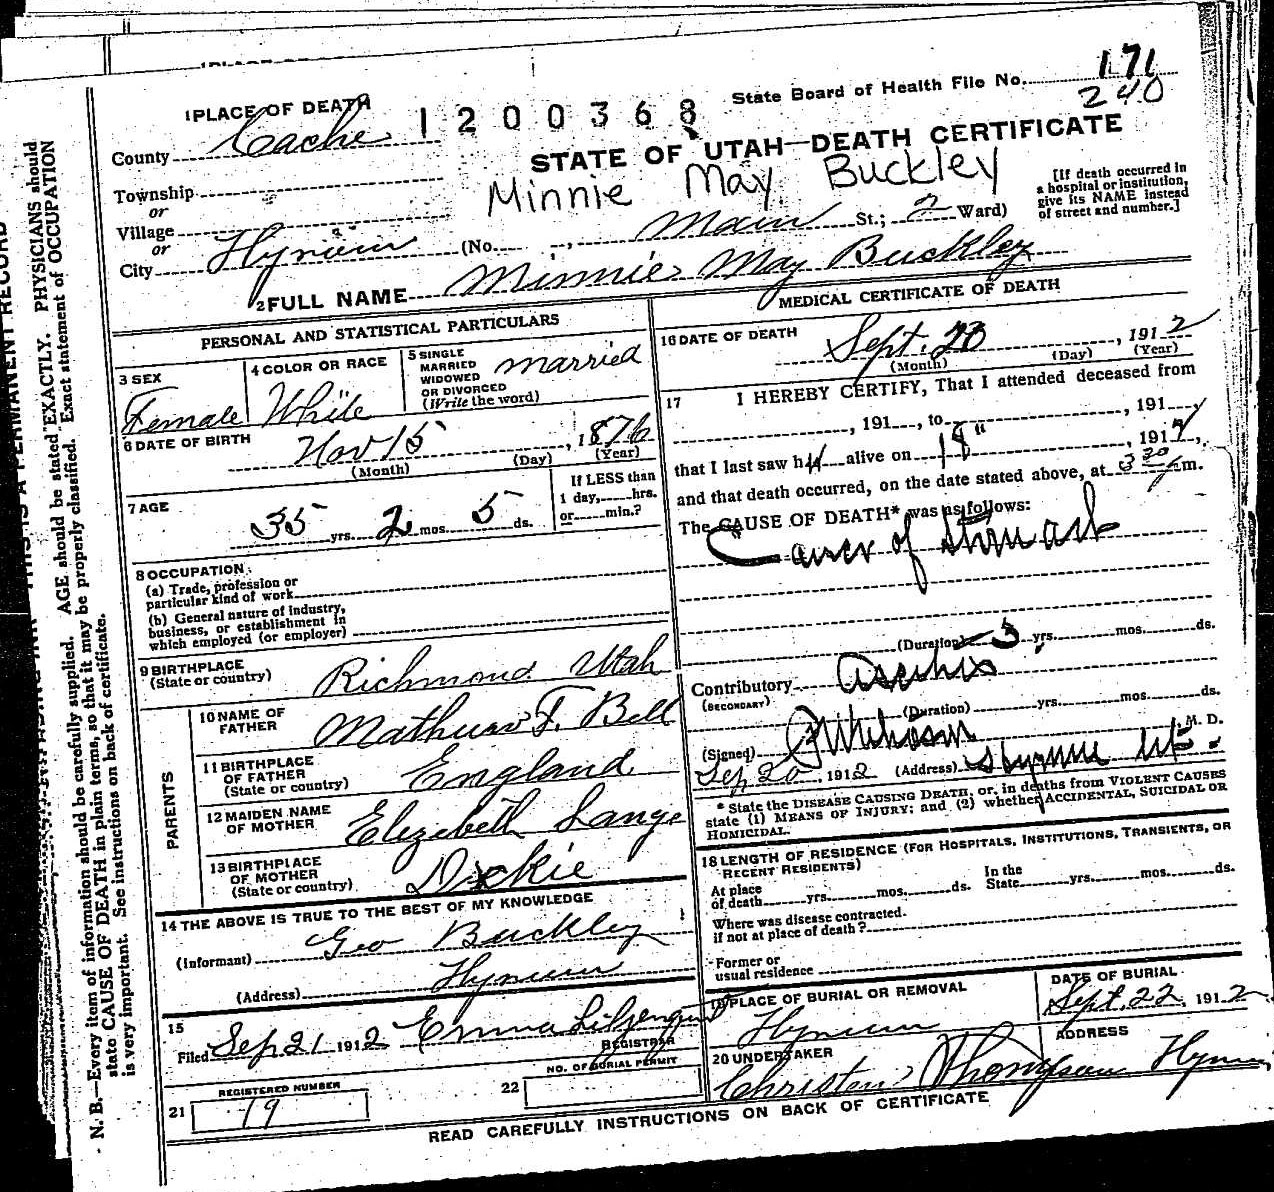 State Board of Health File No. 171
240
1 PLACE OF DEATH
1200368
County Cache
STATE OF UTAH—DEATH CERTIFICATE
Minnie May Buckley
Township
or
Village
or
City Hyrum (No. —, Main St.; 2 Ward)
[If death occurred in a hospital or institution, give its NAME instead of street and number.]
2 FULL NAME Minnie May Buckley
PERSONAL AND STATISTICAL PARTICULARS
3 SEX
Female
4 COLOR OR RACE
White
5 SINGLE
MARRIED
WIDOWED
OR DIVORCED
(Write the word)
married
6 DATE OF BIRTH
Nov 15, 1876
(Month) (Day) (Year)
7 AGE
35 yrs. 2 mos. 5 ds.
If LESS than
1 day, hrs.
or min.?
8 OCCUPATION
(a) Trade, profession or
particular kind of work
(b) General nature of industry,
business, or establishment in
which employed (or employer)
9 BIRTHPLACE
(State or country) Richmond Utah
PARENTS
10 NAME OF
FATHER F. Bell
11 BIRTHPLACE
OF FATHER
(State or country) England
12 MAIDEN NAME
OF MOTHER Elizabeth Lange
13 BIRTHPLACE
OF MOTHER
(State or country)
14 THE ABOVE IS TRUE TO THE BEST OF MY KNOWLEDGE
(Informant) Geo Buckley
(Address) Hyrum
15
Filed Sep 21 1912 Emma Liljenquist
REGISTRAR
REGISTERED NUMBER
21 19
NO. OF BURIAL PERMIT
22
MEDICAL CERTIFICATE OF DEATH
16 DATE OF DEATH
Sept. 20, 1912
(Month) (Day) (Year)
17 I HEREBY CERTIFY, That I attended deceased from
, 191 , to , 191
that I last saw h alive on 18", 191
and that death occurred, on the date stated above, at 3 30 m.
The CAUSE OF DEATH* was as follows:
Cancer of Stomach
(Duration) 3 yrs. mos. ds.
Contributory
(SECONDARY)
(Duration) yrs. mos. ds.
(Signed) , M. D.
Sep 20, 1912 (Address) Hyrum Ut.
* State the DISEASE CAUSING DEATH, or, in deaths from VIOLENT CAUSES
state (1) MEANS OF INJURY; and (2) whether ACCIDENTAL, SUICIDAL OR
HOMICIDAL.
18 LENGTH OF RESIDENCE (FOR HOSPITALS, INSTITUTIONS, TRANSIENTS, OR
RECENT RESIDENTS)
At place
of death yrs. mos. ds.
In the
State yrs. mos. ds.
Where was disease contracted.
if not at place of death?
Former or
usual residence
19 PLACE OF BURIAL OR REMOVAL
Hyrum
DATE OF BURIAL
Sept. 22, 1912
20 UNDERTAKER
Christen Thompson
ADDRESS
Hyrum
READ CAREFULLY INSTRUCTIONS ON BACK OF CERTIFICATE
N. B.—Every item of information should be carefully supplied. AGE should be stated EXACTLY. PHYSICIANS should
state CAUSE OF DEATH in plain terms, so that it may be properly classified. Exact statement of OCCUPATION
is very important. See instructions on back of certificate.